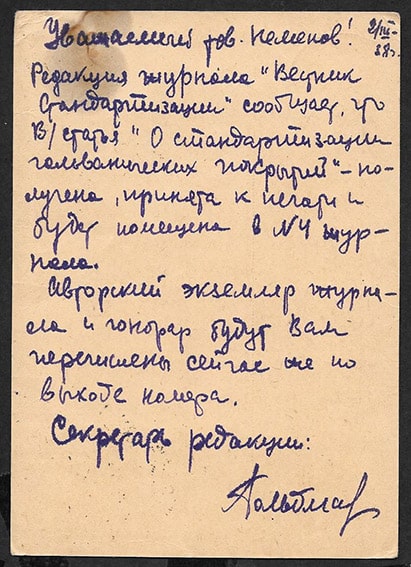 2/III-
38г.
Уважаемый тов. Неменов!
Редакция журнала "Вестник
Стандартизации" сообщает, что
В/статья "О стандартизации
гальванических покрытий" – по-
лучена, принята к печати и
будет помещена в №4 жур-
нала.
Авторский экземляр журна-
ла и гонорар будут Вам
перечислены сейчас же по
выходе номера.
Секретарь редакции: